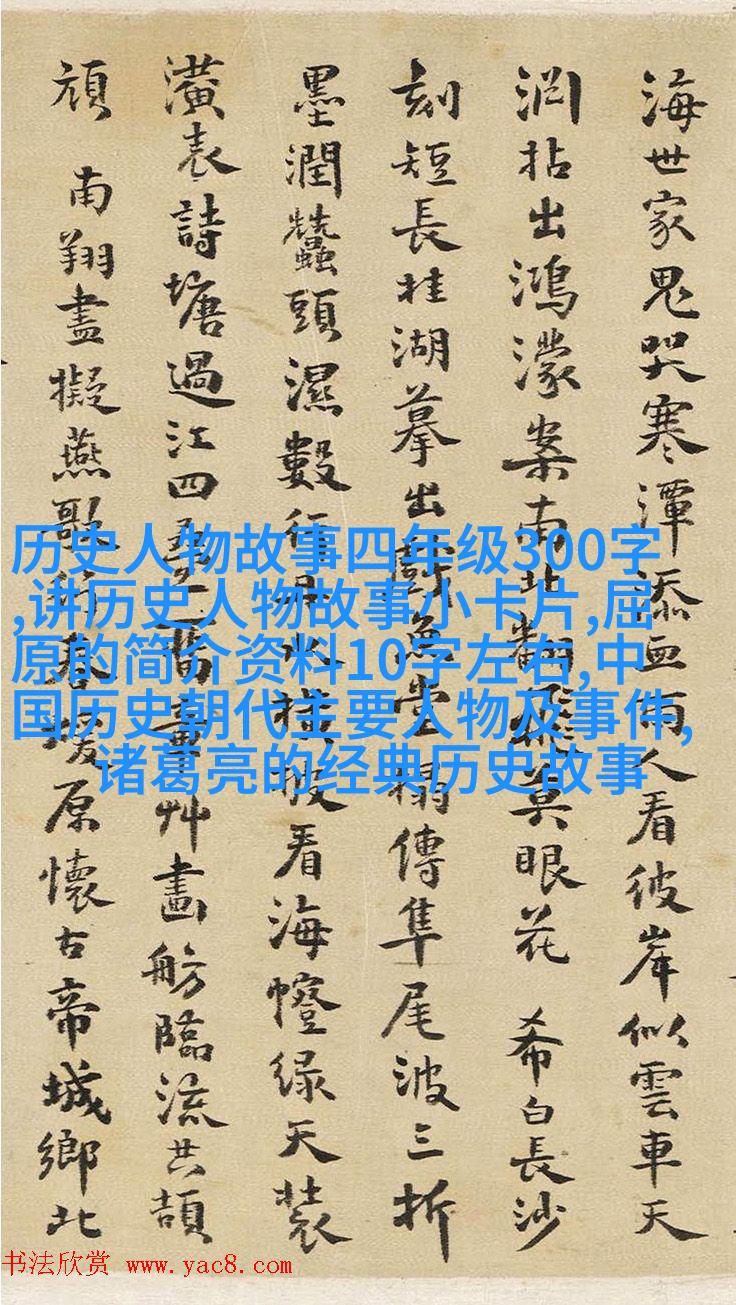 海世家鬼哭寒潭添血雨人看彼岸似雲車天
拈出鴻濛案南北翻飛莫眼花 希白長沙
刻短長桂湖摹出戲魚堂榻傳隼尾波三折
墨潤蠶頭濕數行水披看海幢绿天裝
潢表詩塘過江四艸畵舫臨流共頡
頏 南翔盡擬燕歌行春原懷古帝城鄉北
历史人物故事四年级300字
,讲历史人物故事小卡片,屈
原的简介资料10字左右,中
国历史朝代主要人物及事件,
诸葛亮的经典历史故事
书法欣赏 www.yac8.com